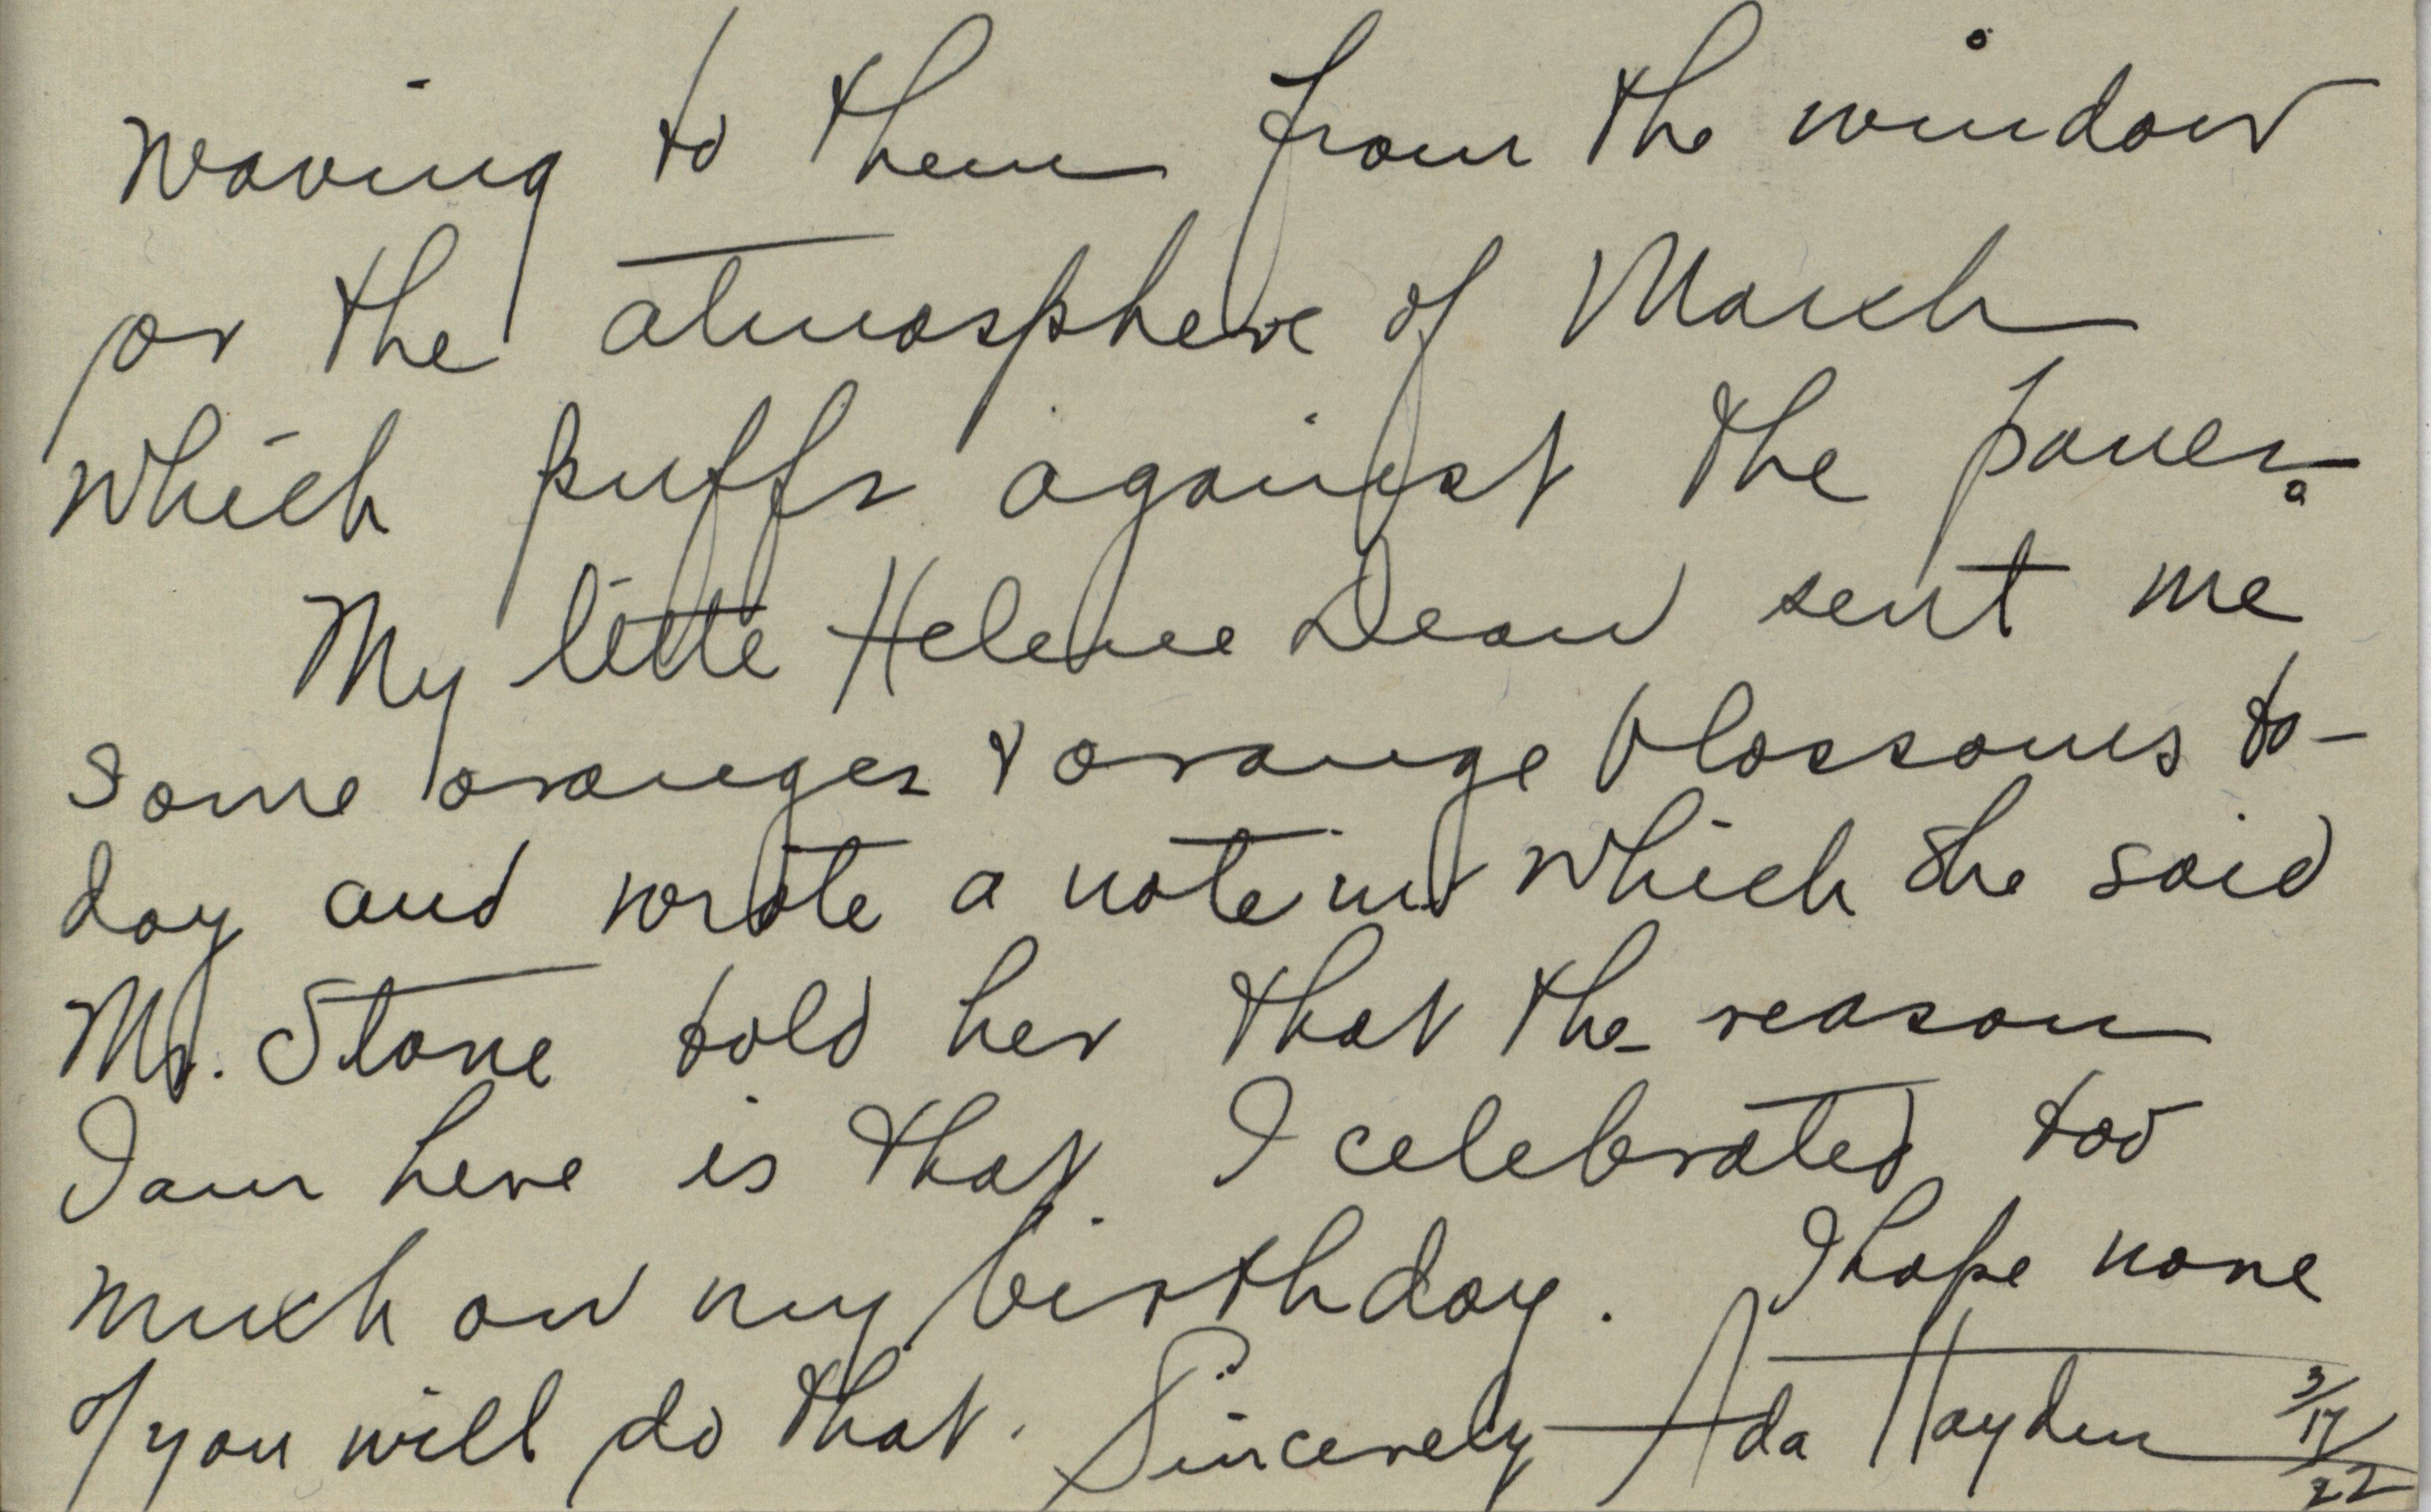 waving to them from the window
or the atmosphere of March
which puffs against the panes.
My little Helene Dean sent me
some oranges & orange blossoms to-
day and wrote a note in which she said
Mr. Stone told her that the reason
I am here is that I celebrated too
much on my birthday. I hope none
of you will do that. Sincerely Ada Hayden 3/17/22